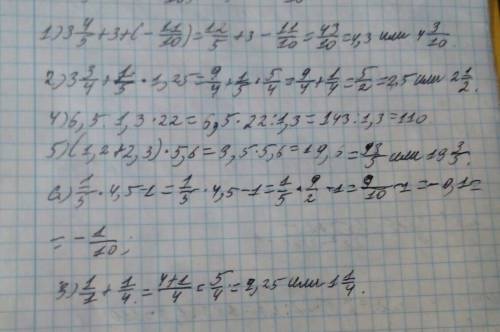 1) 3 4/5 + 3 + (- 11/10) = 12/5 + 3 - 11/10 = 43/10 = 4,3 или 4 3/10.
2) 3 3/4 + 1/5 * 1,25 = 9/4 + 1/5 * 5/4 = 9/4 + 1/4 = 5/2 = 2,5 или 2 1/2.
4) 6,5 : 1,3 * 22 = 6,5 * 22 : 1,3 = 143 : 1,3 = 110
5) (1,2 + 2,3) * 5,6 = 3,5 * 5,6 = 19, = или 19 3/5.
а) 1/5 * 4,5 - 1 = 1/5 * 4,5 - 1 = 1/5 * 9/2 - 1 = 9/10 - 1 = - 0,1 =
= - 1/10;
3) 1/1 + 1/4 = 4+1/4 = 5/4 = 1,25 или 1 1/4.